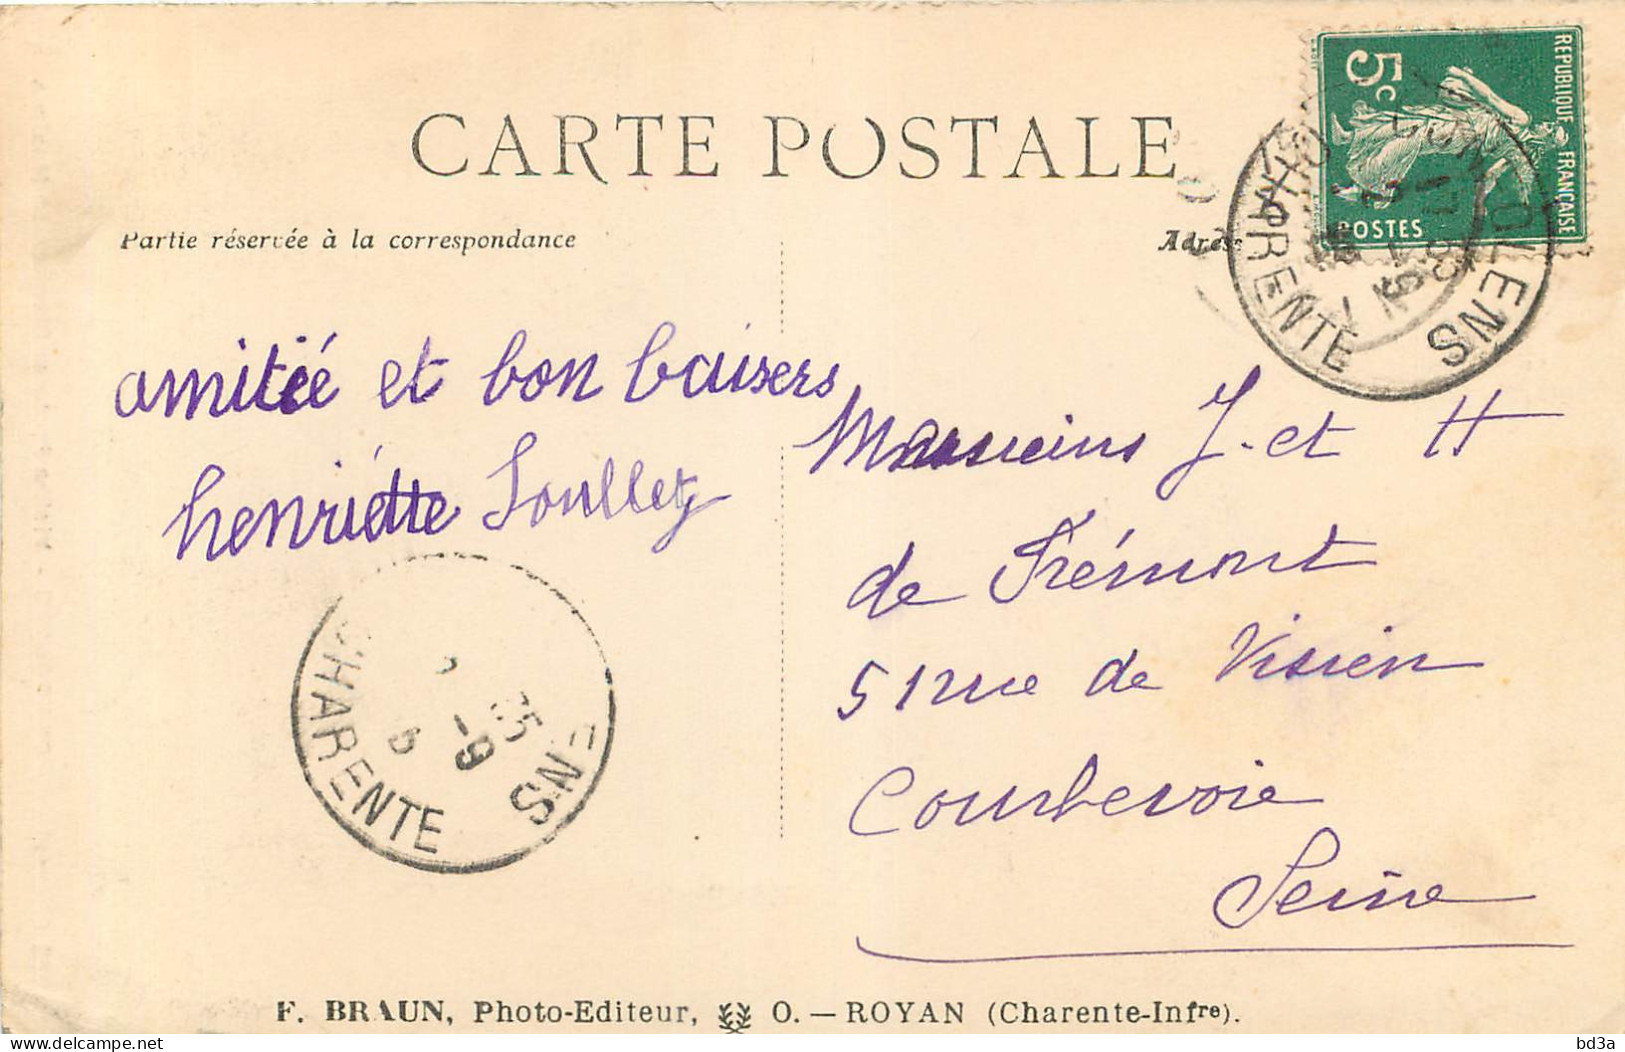 CARTE POSTALE
Partie réservée à la correspondance
REPUBLIQUE FRANÇAISE
5c
POSTES
CHARENTE
amitiée et bon baisers
henriette Soullez
Messieurs J. et H
de Frémont
51 rue de Visien
Courbevoie
Seine
CHARENTE
F. BRAUN, Photo-Editeur, O. — ROYAN (Charente-Infre).
bd3a